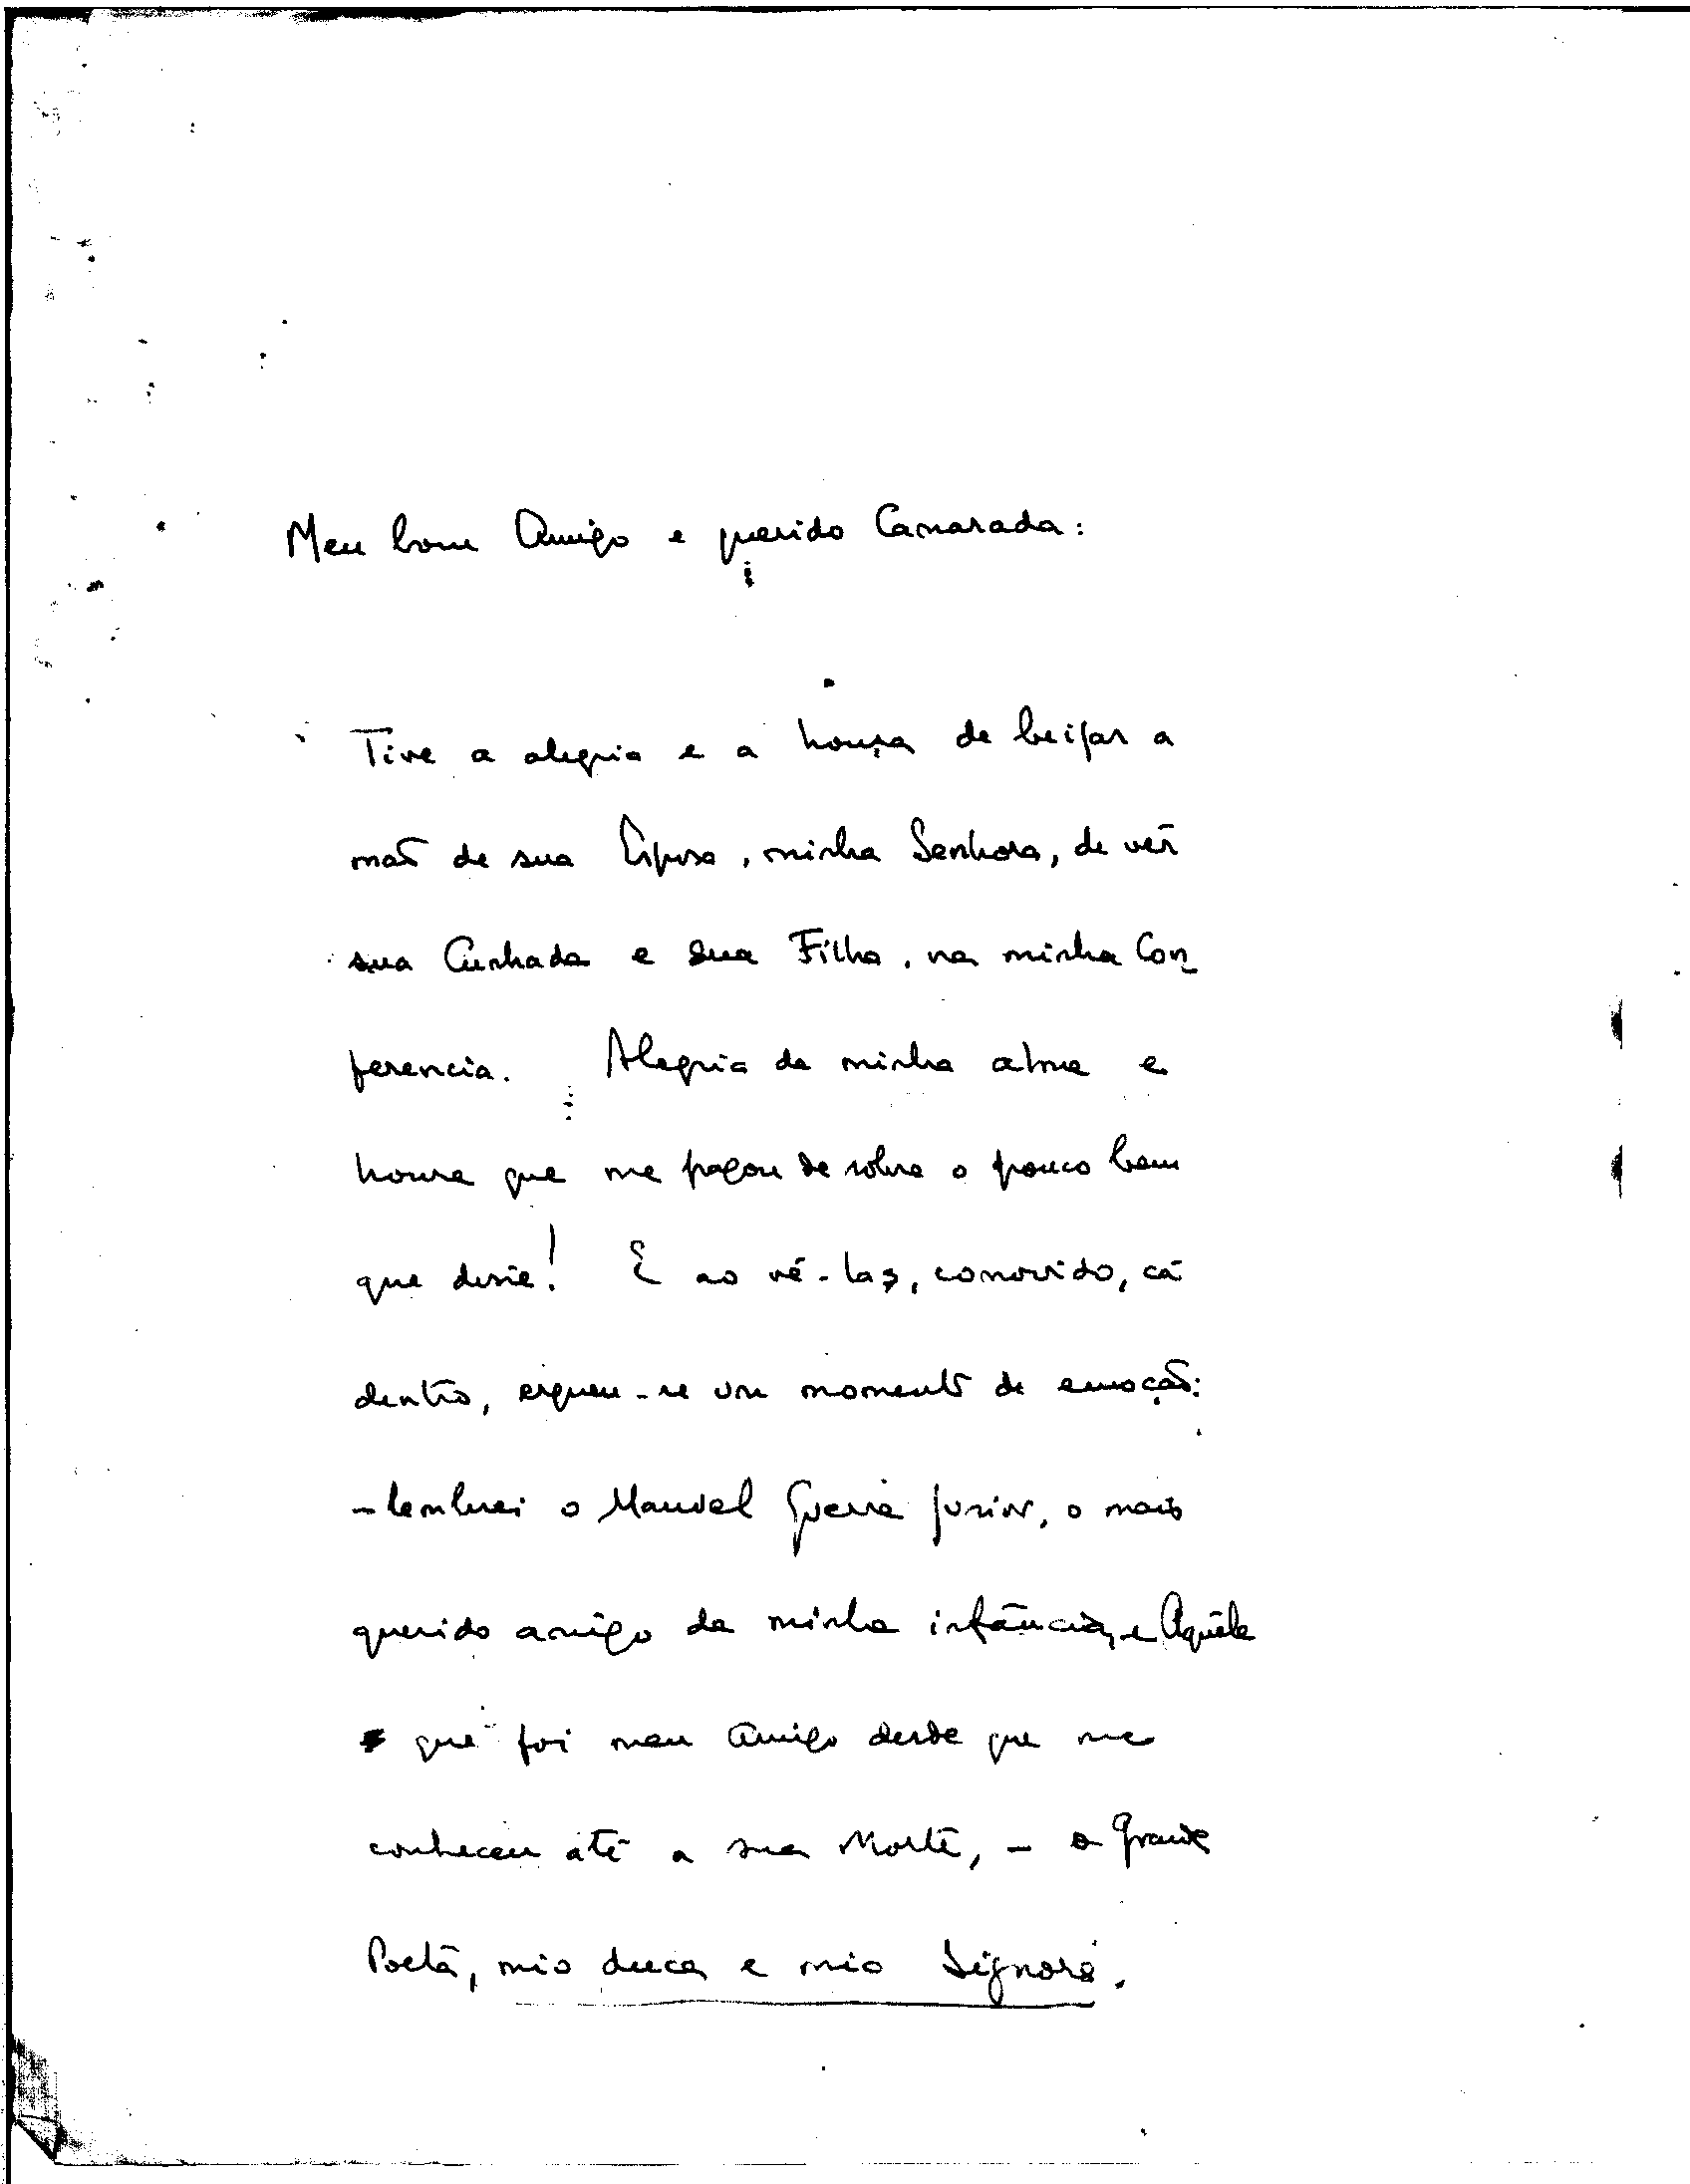 Meu bom Amigo e querido Camarada:
Tive a alegria e a honra de beijar a
mão de sua Esposa, minha Senhora, de vêr
sua Cunhada e sua Filha, na minha Con
ferencia. Alegria da minha alma e
honra que me pagou de sobra o pouco bem
que disse! E ao vê-las, comovido, cá
dentro, ergueu-se um momento de emoção:
- lembrei o Manuel Guerra Junior, o mais
querido amigo da minha infância, e Aquêle
que foi meu Amigo desde que me
conheceu até a sua Morte, - o Grande
Poeta, mio duca e mio Signore.